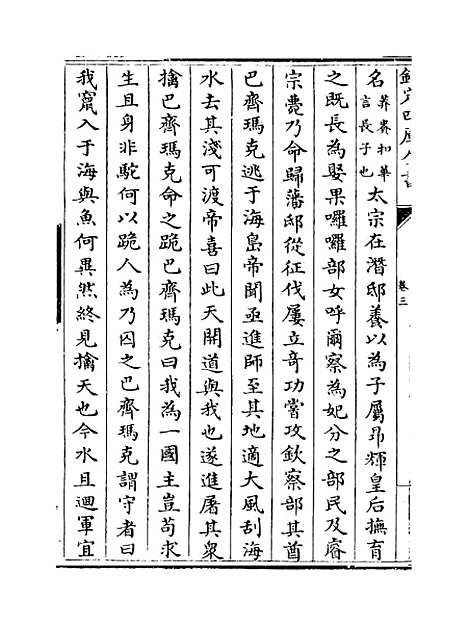 欽定四庫全書
卷三
名莽賚扣華言長子也太宗在潛邸養以為子屬昂輝皇后撫育
之既長為娶果囉囉部女呼爾察為妃分之部民及睿
宗薨乃命歸藩邸從征伐屢立奇功嘗攻欽察部其酋
巴齊瑪克逃于海島帝聞亟進師至其地適大風刮海
水去其淺可渡帝喜曰此天開道與我也遂進屠其衆
擒巴齊瑪克命之跪巴齊瑪克曰我為一國主豈苟求
生且身非駝何以跪人為乃囚之巴齊瑪克謂守者曰
我竄入于海與魚何異然終見擒天也今水且迴軍宜